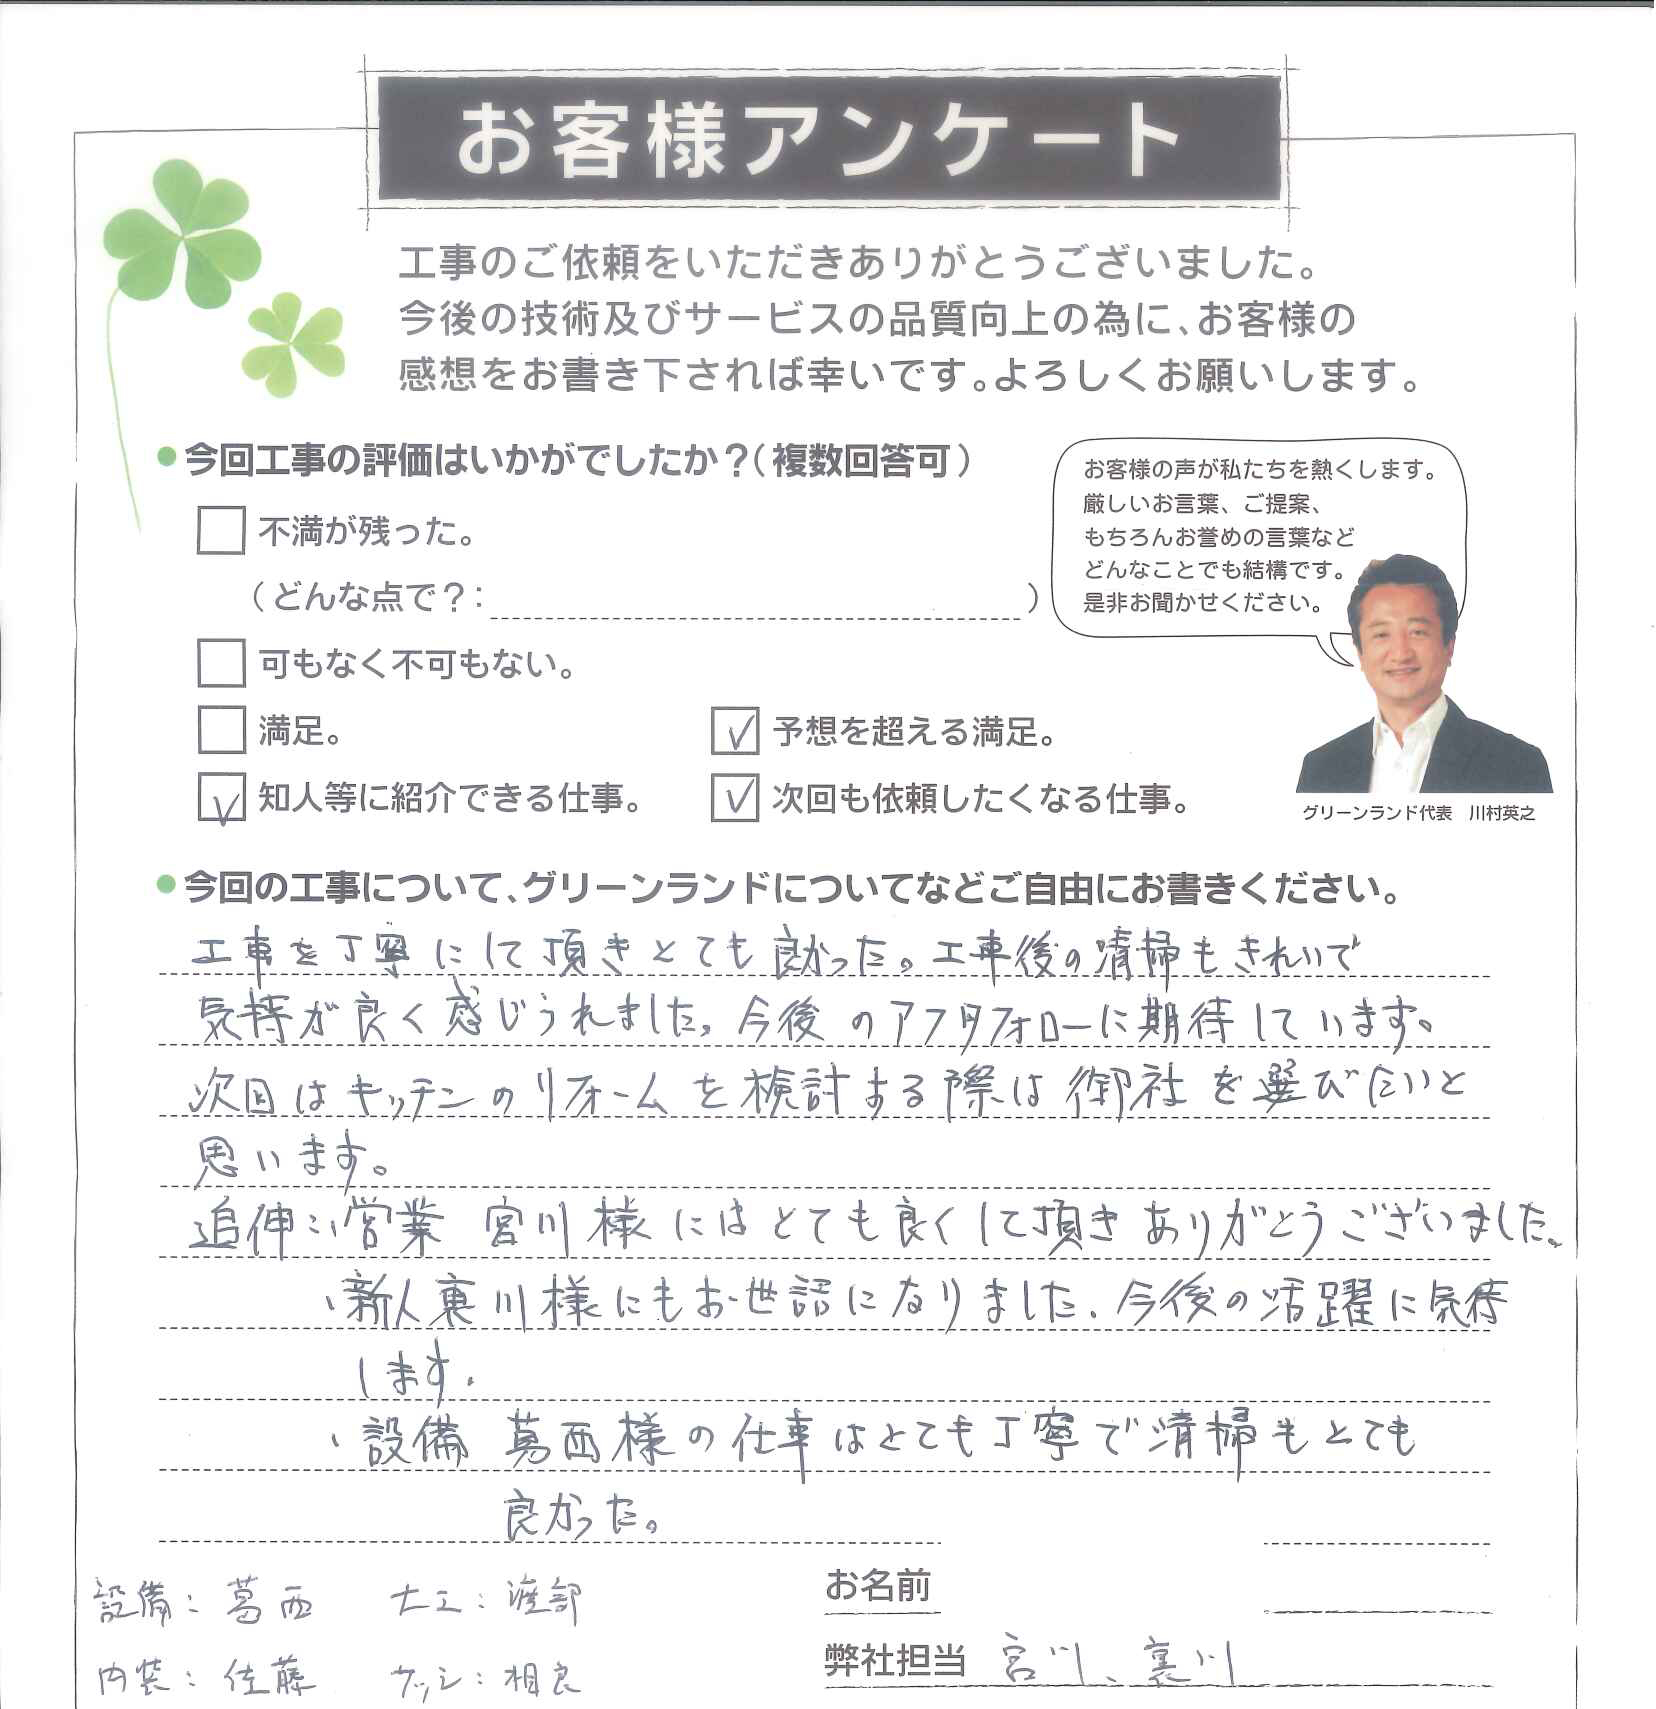 お客様アンケート
工事のご依頼をいただきありがとうございました。
今後の技術及びサービスの品質向上の為に、お客様の
感想をお書き下されば幸いです。よろしくお願いします。
●今回工事の評価はいかがでしたか？（複数回答可）
不満が残った。
（どんな点で？： ）
可もなく不可もない。
満足。
✓ 予想を超える満足。
✓ 知人等に紹介できる仕事。
✓ 次回も依頼したくなる仕事。
お客様の声が私たちを熱くします。
厳しいお言葉、ご提案、
もちろんお誉めの言葉など
どんなことでも結構です。
是非お聞かせください。
グリーンランド代表 川村英之
●今回の工事について、グリーンランドについてなどご自由にお書きください。
工事を丁寧にして頂きとても良かった。工事後の清掃もきれいで
気持が良く感じられました。今後のアフタフォローに期待しています。
次回はキッチンのリフォームを検討する際は御社を選びたいと
思います。
追伸：・営業 宮川様にはとても良くして頂きありがとうございました。
・新人裏川様にもお世話になりました。今後の活躍に気待
します。
・設備 葛西様の仕事はとても丁寧で清掃もとても
良かった。
お名前
弊社担当 宮川、裏川
設備：葛西 大工：渡部
内装：佐藤 サッシ：相良